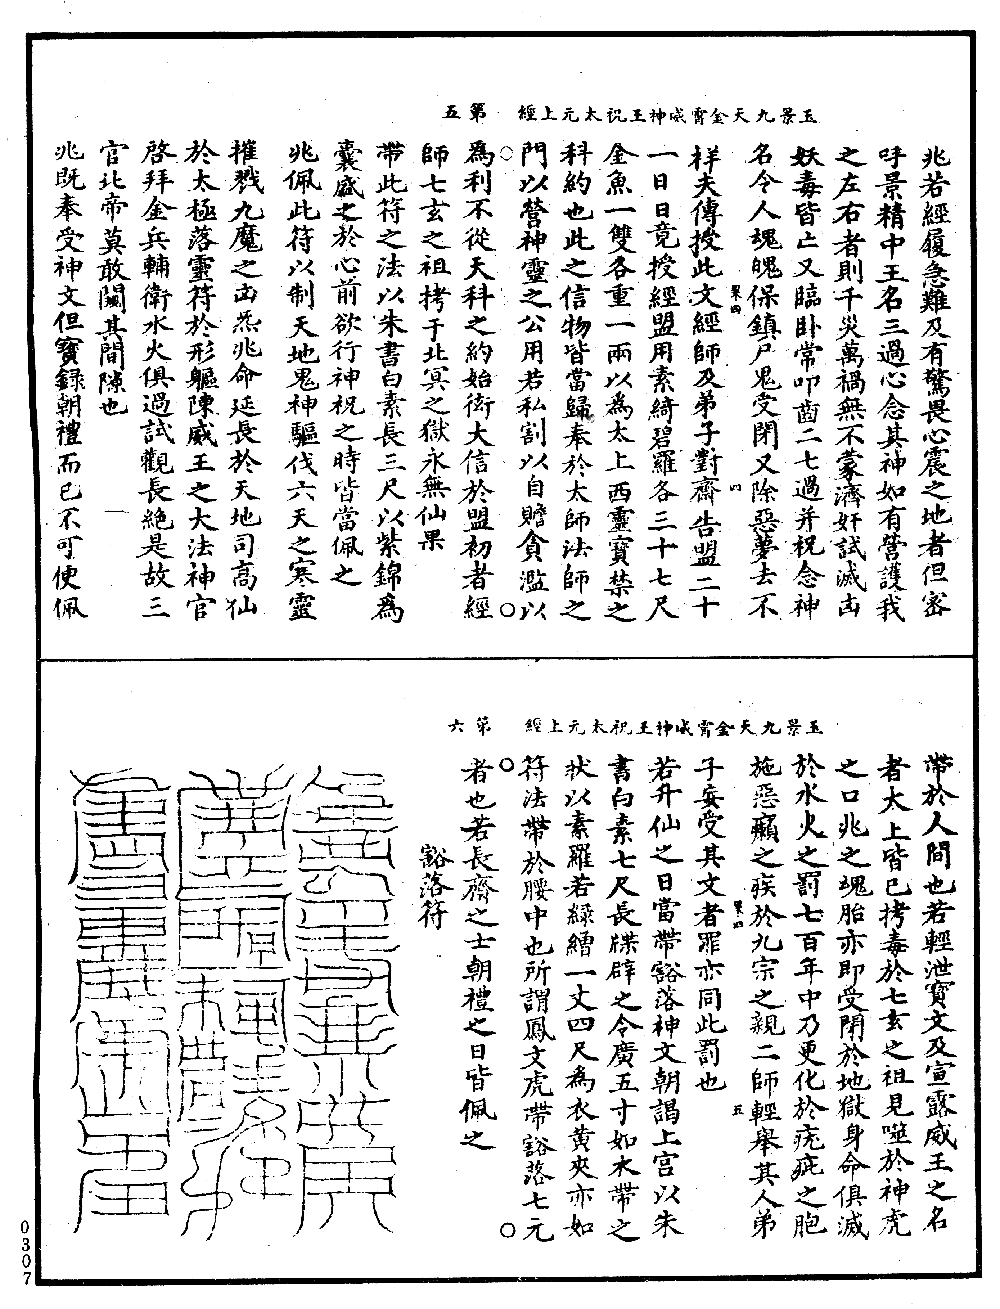 玉景九天金霄威神王祝太元上經 第五
兆若經履急難及有驚畏心震之地者但密
呼景精中王名三過心念其神如有營護我
之左右者則千災萬禍無不蒙濟奸試滅凶
妖毒皆亡又臨卧常叩齒二七過并祝念神
名令人魂魄保鎮尸鬼受閉又除惡夢去不
祥夫傳授此文經師及弟子對齋告盟二十
一日日竟授經盟用素綺碧羅各三十七尺
金魚一雙各重一兩以為太上西靈寶禁之
科約也此之信物皆當歸奉於太師法師之
門以營神靈之公用若私割以自贍貪濫以
為利不從天科之約始術大信於盟初者經
師七玄之祖拷于北冥之獄永無仙果
帶此符之法以朱書白素長三尺以紫錦為
囊盛之於心前欲行神祝之時皆當佩之
兆佩此符以制天地鬼神驅伐六天之寒靈
摧戮九魔之凶炁兆命延長於天地司高仙
於太極落靈符於形軀陳威王之大法神官
啓拜金兵輔衛水火俱過試觀長絶是故三
官北帝莫敢闚其間隙也
兆既奉受神文但寶録朝禮而已不可便佩
玉景九天金霄威神王祝太元上經 第六
帶於人間也若輕泄寶文及宣露威王之名
者太上皆已拷毒於七玄之祖見噬於神虎
之口兆之魂胎亦即受閉於地獄身命俱滅
於水火之罰七百年中乃更化於疣疵之胞
施惡癩之疾於九宗之親二師輕舉其人弟
子妄受其文者罪亦同此罰也
若升仙之日當帶豁落神文朝謁上宮以朱
書白素七尺長牒辟之令廣五寸如木帶之
狀以素羅若緑繒一丈四尺為衣黄夾亦如
符法帶於腰中也所謂鳳文虎帶豁落七元
者也若長齋之士朝禮之日皆佩之
豁落符
0307